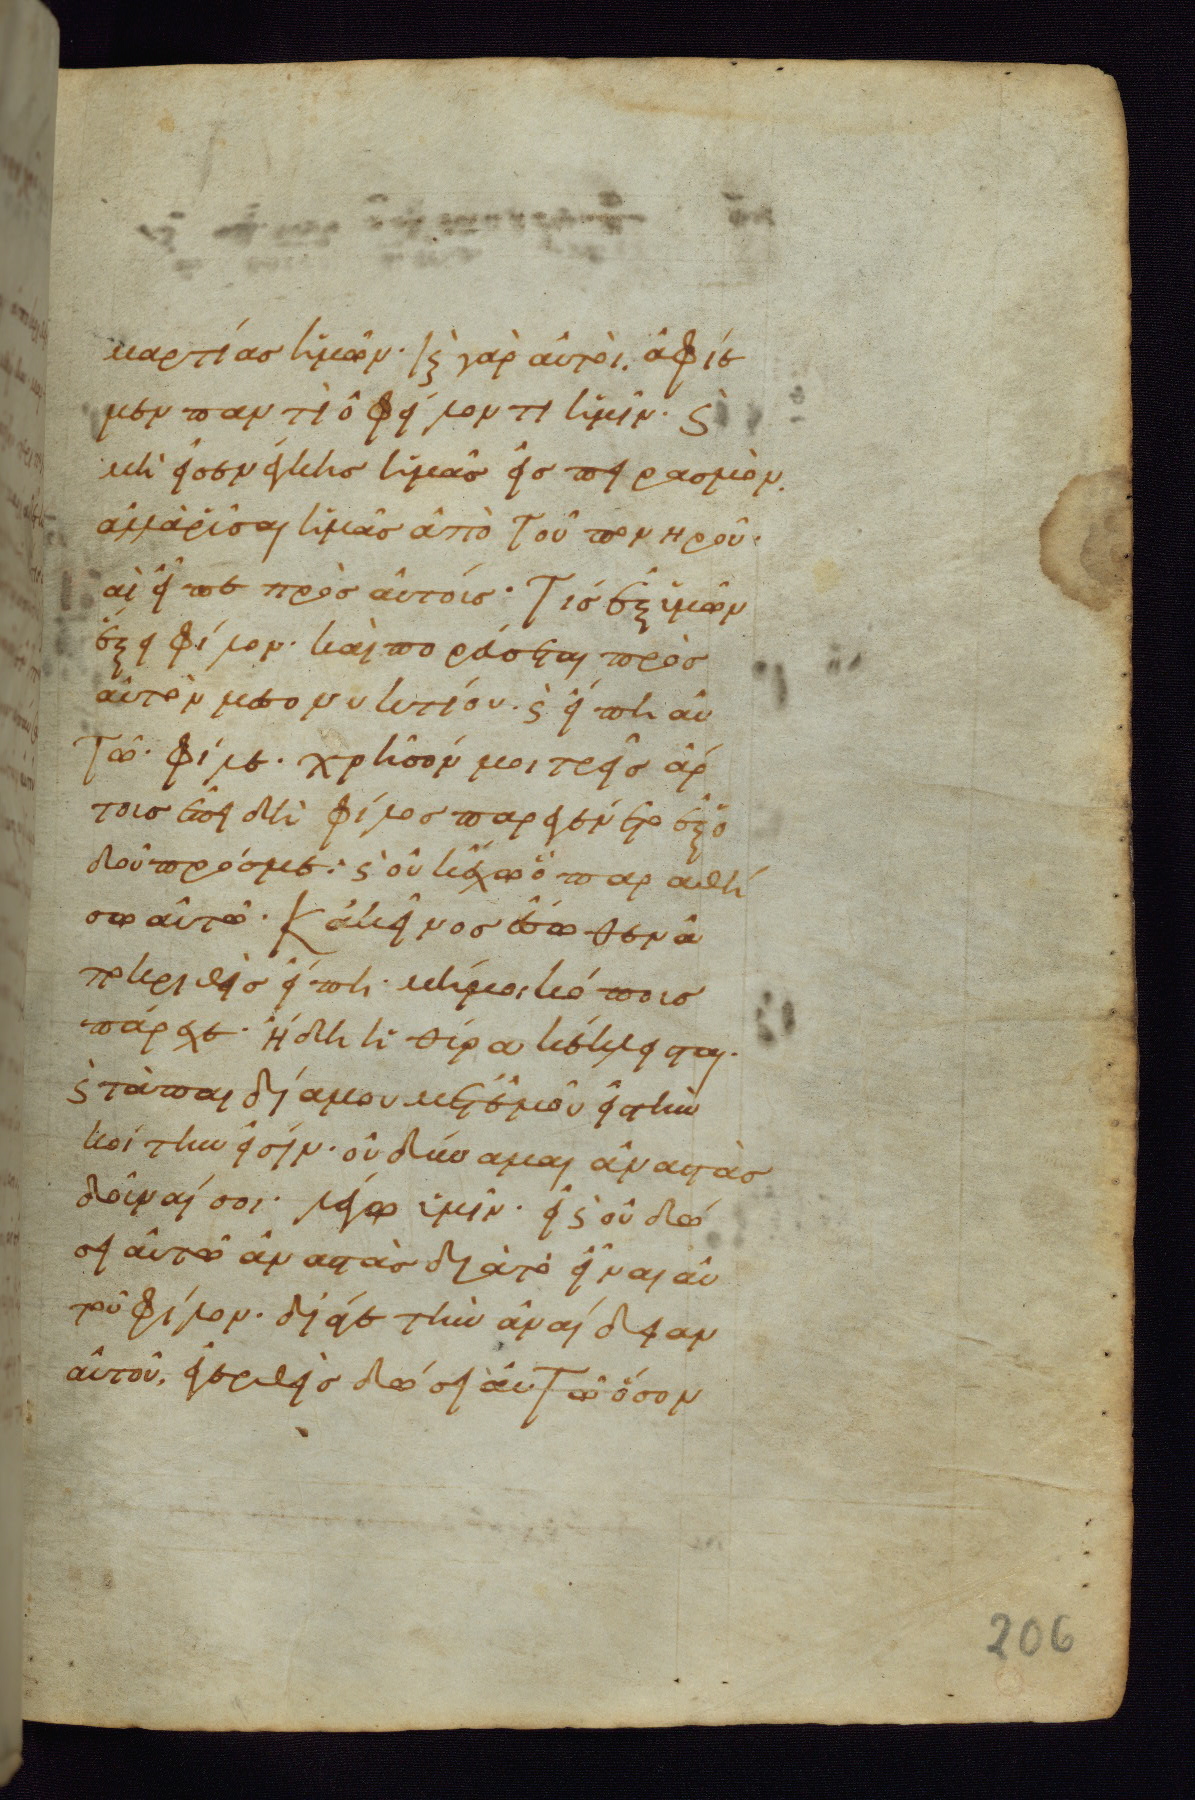 μαρτίας ἡμῶν· ϗ γὰρ αὐτοὶ ἀφίε
μεν παντὶ ὀφείλοντι ἡμῖν· ϗ
μὴ εἰσενέγκης ἡμᾶς εἰς πειρασμὸν.
ἀλλὰ ῥῦσαι ἡμᾶς ἀπὸ τοῦ πονηροῦ·
αὶ εἶπε πρὸς αὐτοίς· Τίς ἐξ ὑμῶν
ἕξει φίλον· καὶ πορεύσεται πρὸς
αὐτὸν μεσονυκτίου· ϗ εἴπη αὐ
τῶ· φίλε· χρῆσόν μοι τρεῖς ἄρ
τοις ἐπειδὴ φίλος παρεγένετο ἐξ ὁ
δοῦ πρός με· ϗ οὐκ ἔχω ὃ παραθή
σω αὐτῶ· Κάκεῖνος ἔσωθεν ἀ
ποκριθεὶς εἴπη· μή μοι κόποις
πάρεχε· ἤδη ἡ θύρα κέκλεισται·
ϗ τὰ παιδία μου μετ' ἐμοῦ εἰς τὴν
κοίτην εἰσίν· οὐ δύναμαι ἀναστὰς
δοῦναί σοι· λέγω ὑμῖν· εἰ ϗ οὐ δώ
σει αὐτῶ ἀναστὰς διὰ τὸ εἶναι αὐ
τοῦ φίλον· διά γε τὴν ἀναίδειαν
αὐτοῦ, ἐγερθεὶς δώσει αὐτῶ ὅσον
206